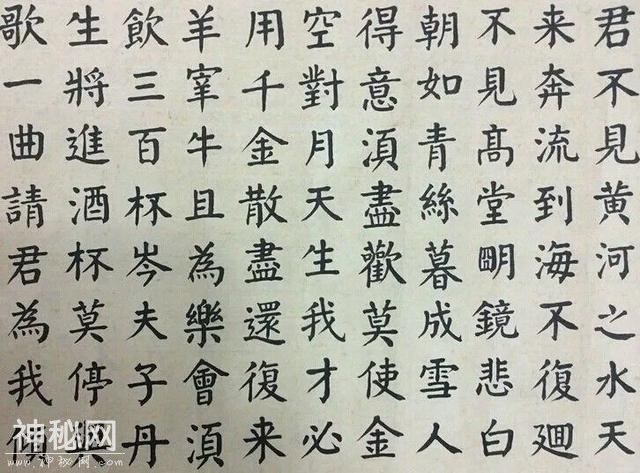 君不見黄河之水天
来奔流到海不復廻
不見髙堂朙鏡悲白
朝如青絲暮成雪人
得意湏盡歡莫使金
空對月天生我才必
用千金散盡還復来
羊宰牛且為樂會湏
飲三百杯岑夫子丹
生將進酒杯莫停
歌一曲請君為我
神秘网
www.神秘网.com